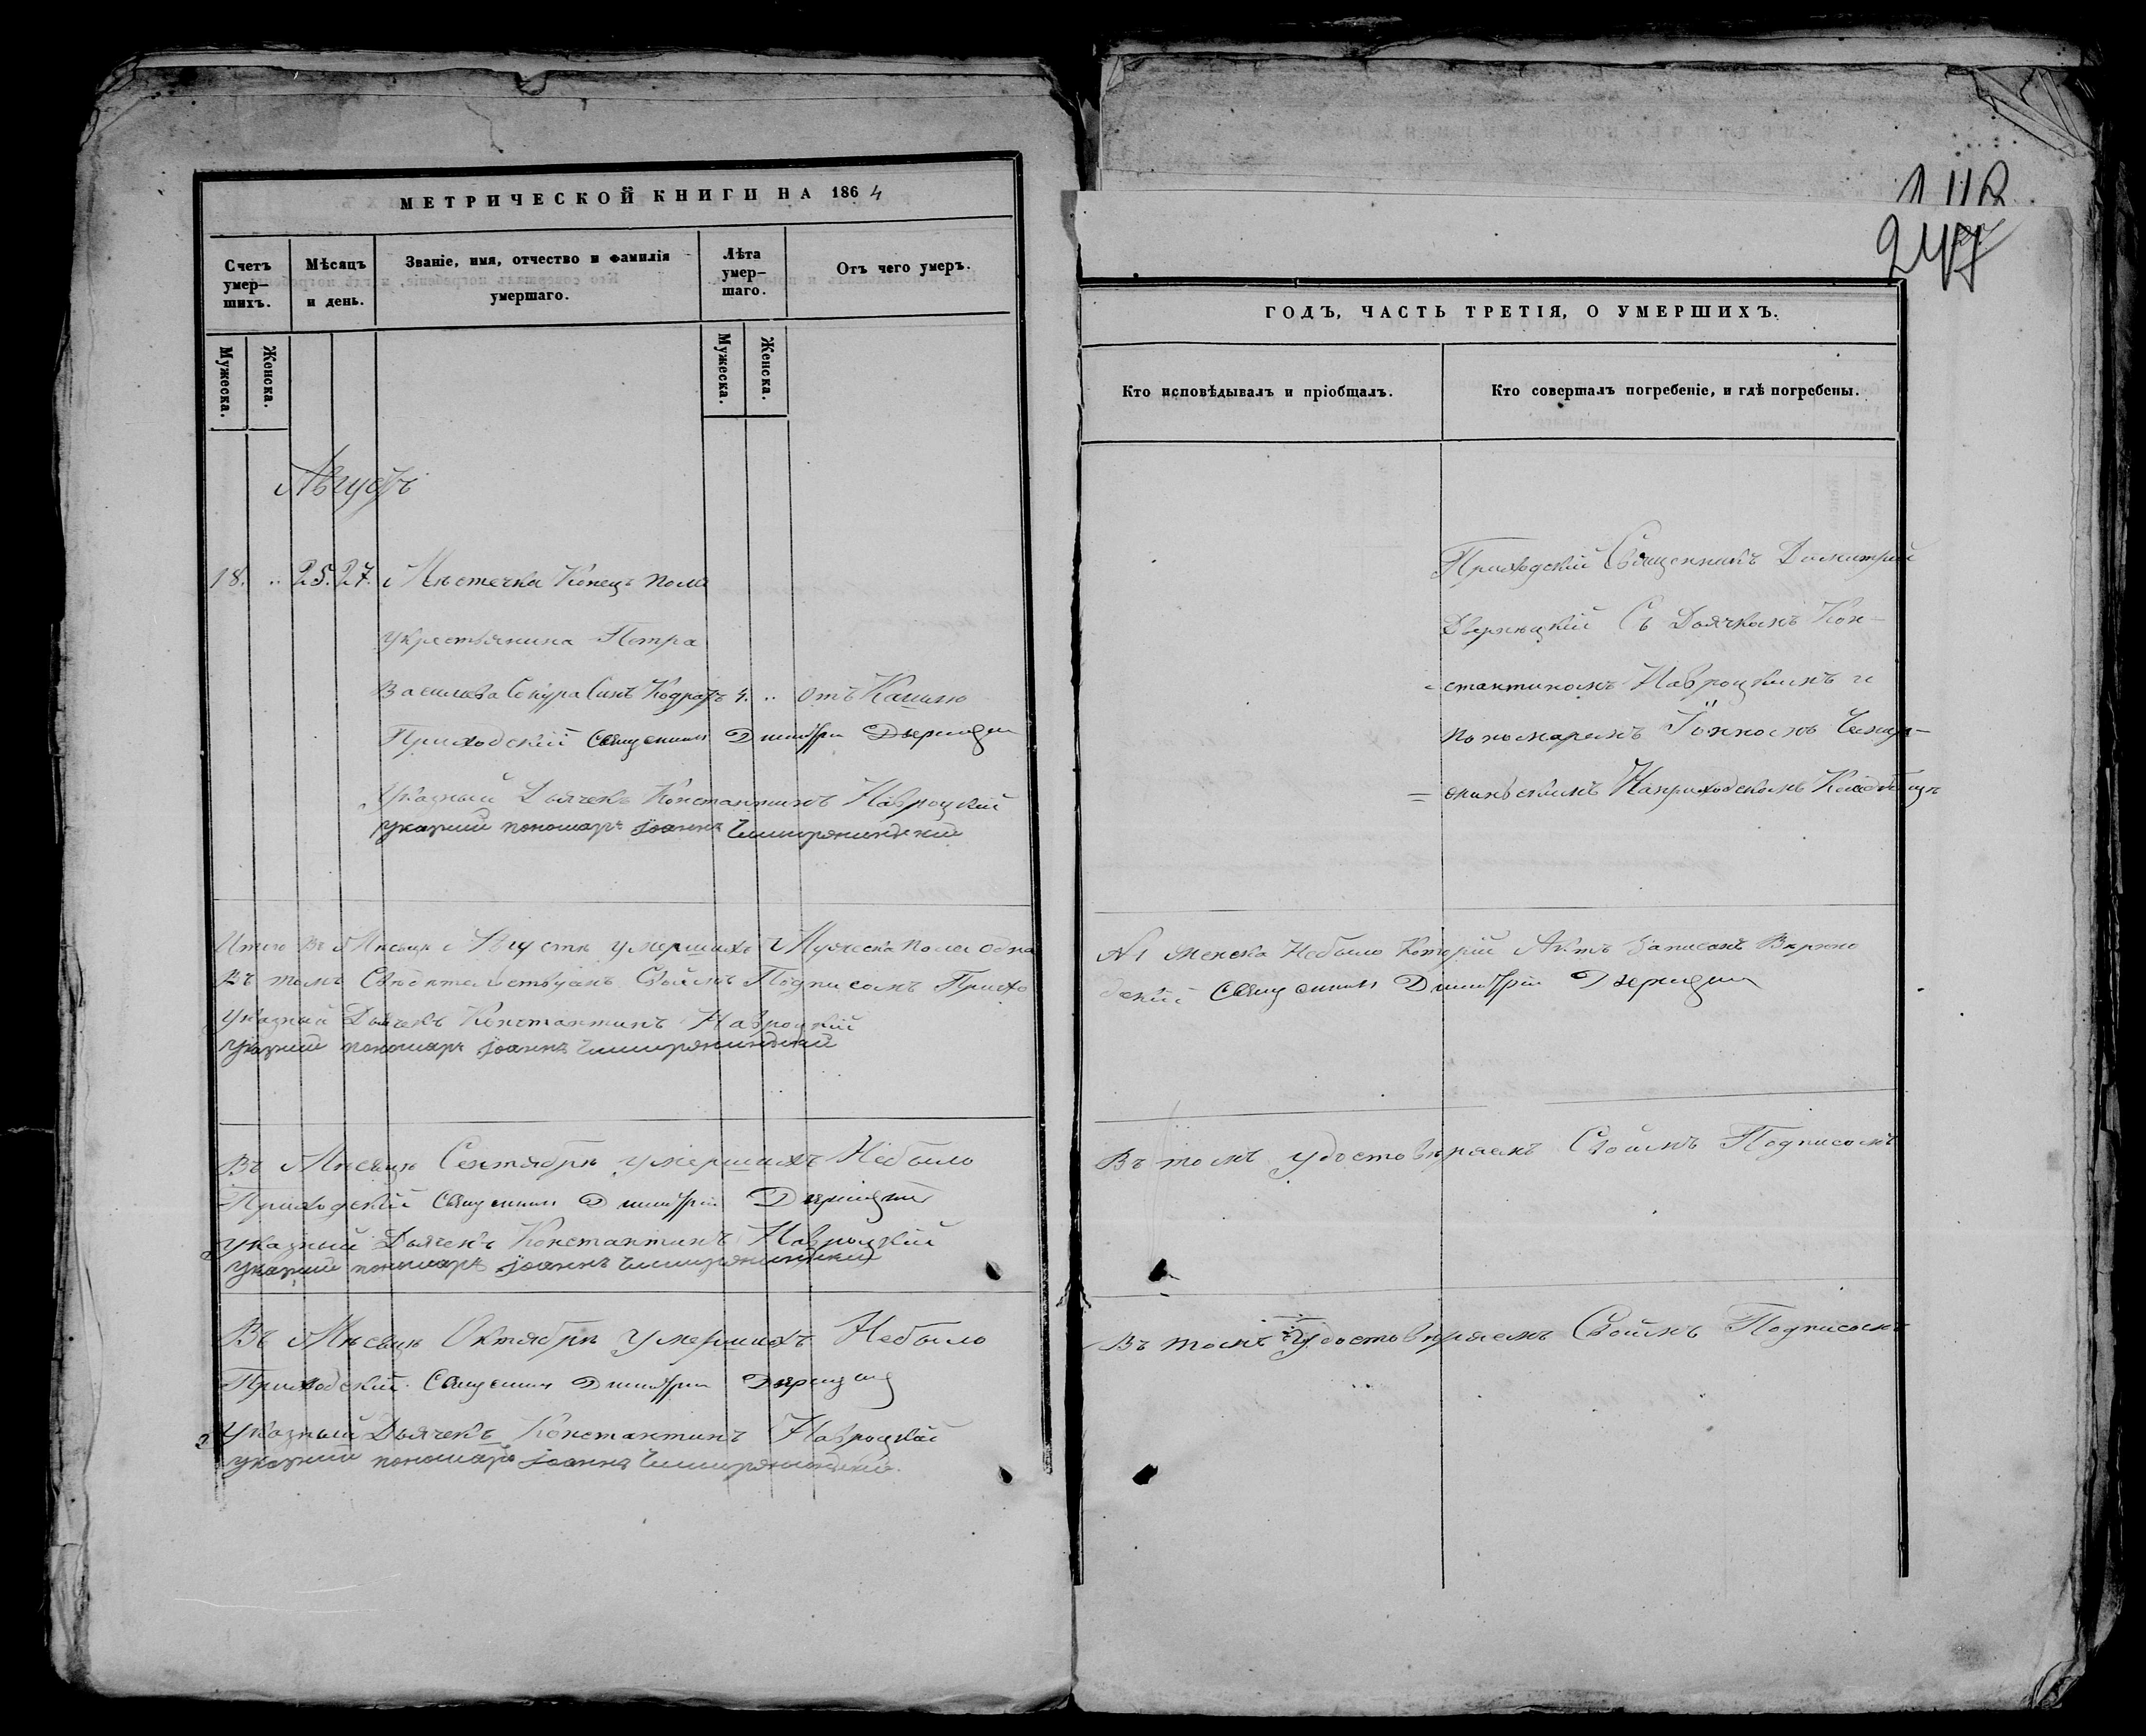 МЕТРИЧЕСКОЙ КНИГИ НА 1864
Счетъ умер-шихъ.
Мѣсяцъ и день.
Званіе, имя, отчество и фамилія умершаго.
Лѣта умер-шаго.
Отъ чего умеръ.
Мужеска.
Женска.
Мужеска.
Женска.
Августъ
18. .. 25. 27. Мѣстечка Конецъ поля
у крестьянина Петра
Василева Сокура Синъ Кодратъ 4. .. Отъ Кашлю
Приходскій Священникъ Димитрій
Указный Дьячекъ Константинъ Навроцкій
указний пономарь Іоаннъ
Итого Въ Мѣсяцѣ Августѣ умершихъ Мужеска пола одна
Въ томъ Свидѣтельствуемъ Своимъ Подписомъ Прихо
Указный Дьячекъ Константинъ Навроцкій
указний пономарь Іоаннъ
Въ Мѣсяцѣ Сентябрѣ умершихъ Небыло
Приходскій Священникъ Димитрій
Указный Дьячекъ Константинъ Навроцкій
указний пономарь Іоаннъ
Въ Мѣсяцѣ Октябрѣ умершихъ Небыло
Приходскій Священникъ Димитрій
Указный Дьячекъ Константинъ Навроцкій
указний пономарь Іоаннъ
247
ГОДЪ, ЧАСТЬ ТРЕТІЯ, О УМЕРШИХЪ.
Кто исповѣдывалъ и пріобщалъ.
Кто совершалъ погребеніе, и гдѣ погребены.
Приходскій Священникъ Димитрій
Съ Дьячкомъ Кон-
стантиномъ Навроцкимъ и
пономаремъ Іоанномъ
На приходскомъ Кладбищѣ
№1 женска Небыло Которій Актъ Записанъ Вѣрно
дскій Священникъ Димитрій
Въ томъ удостовѣряемъ Своимъ Подписомъ
Въ томъ Удостовѣряемъ Своимъ Подписомъ